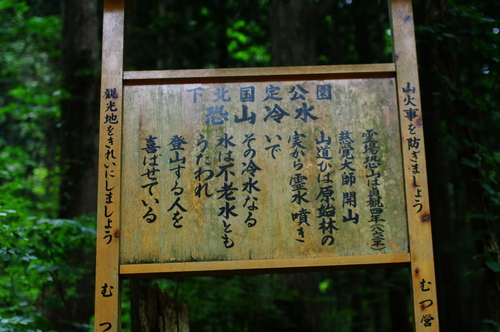 下北国定公園
恐山冷水
霊場恐山は貞観四年(八六二年)
慈覚大師開山
山道には原始林の
実から霊水噴き
いで
その冷水なる
水は不老水とも
うたわれ
登山する人を
喜ばせている
山火事を防ぎましょう
むつ営
観光地をきれいにしましょう
むつ